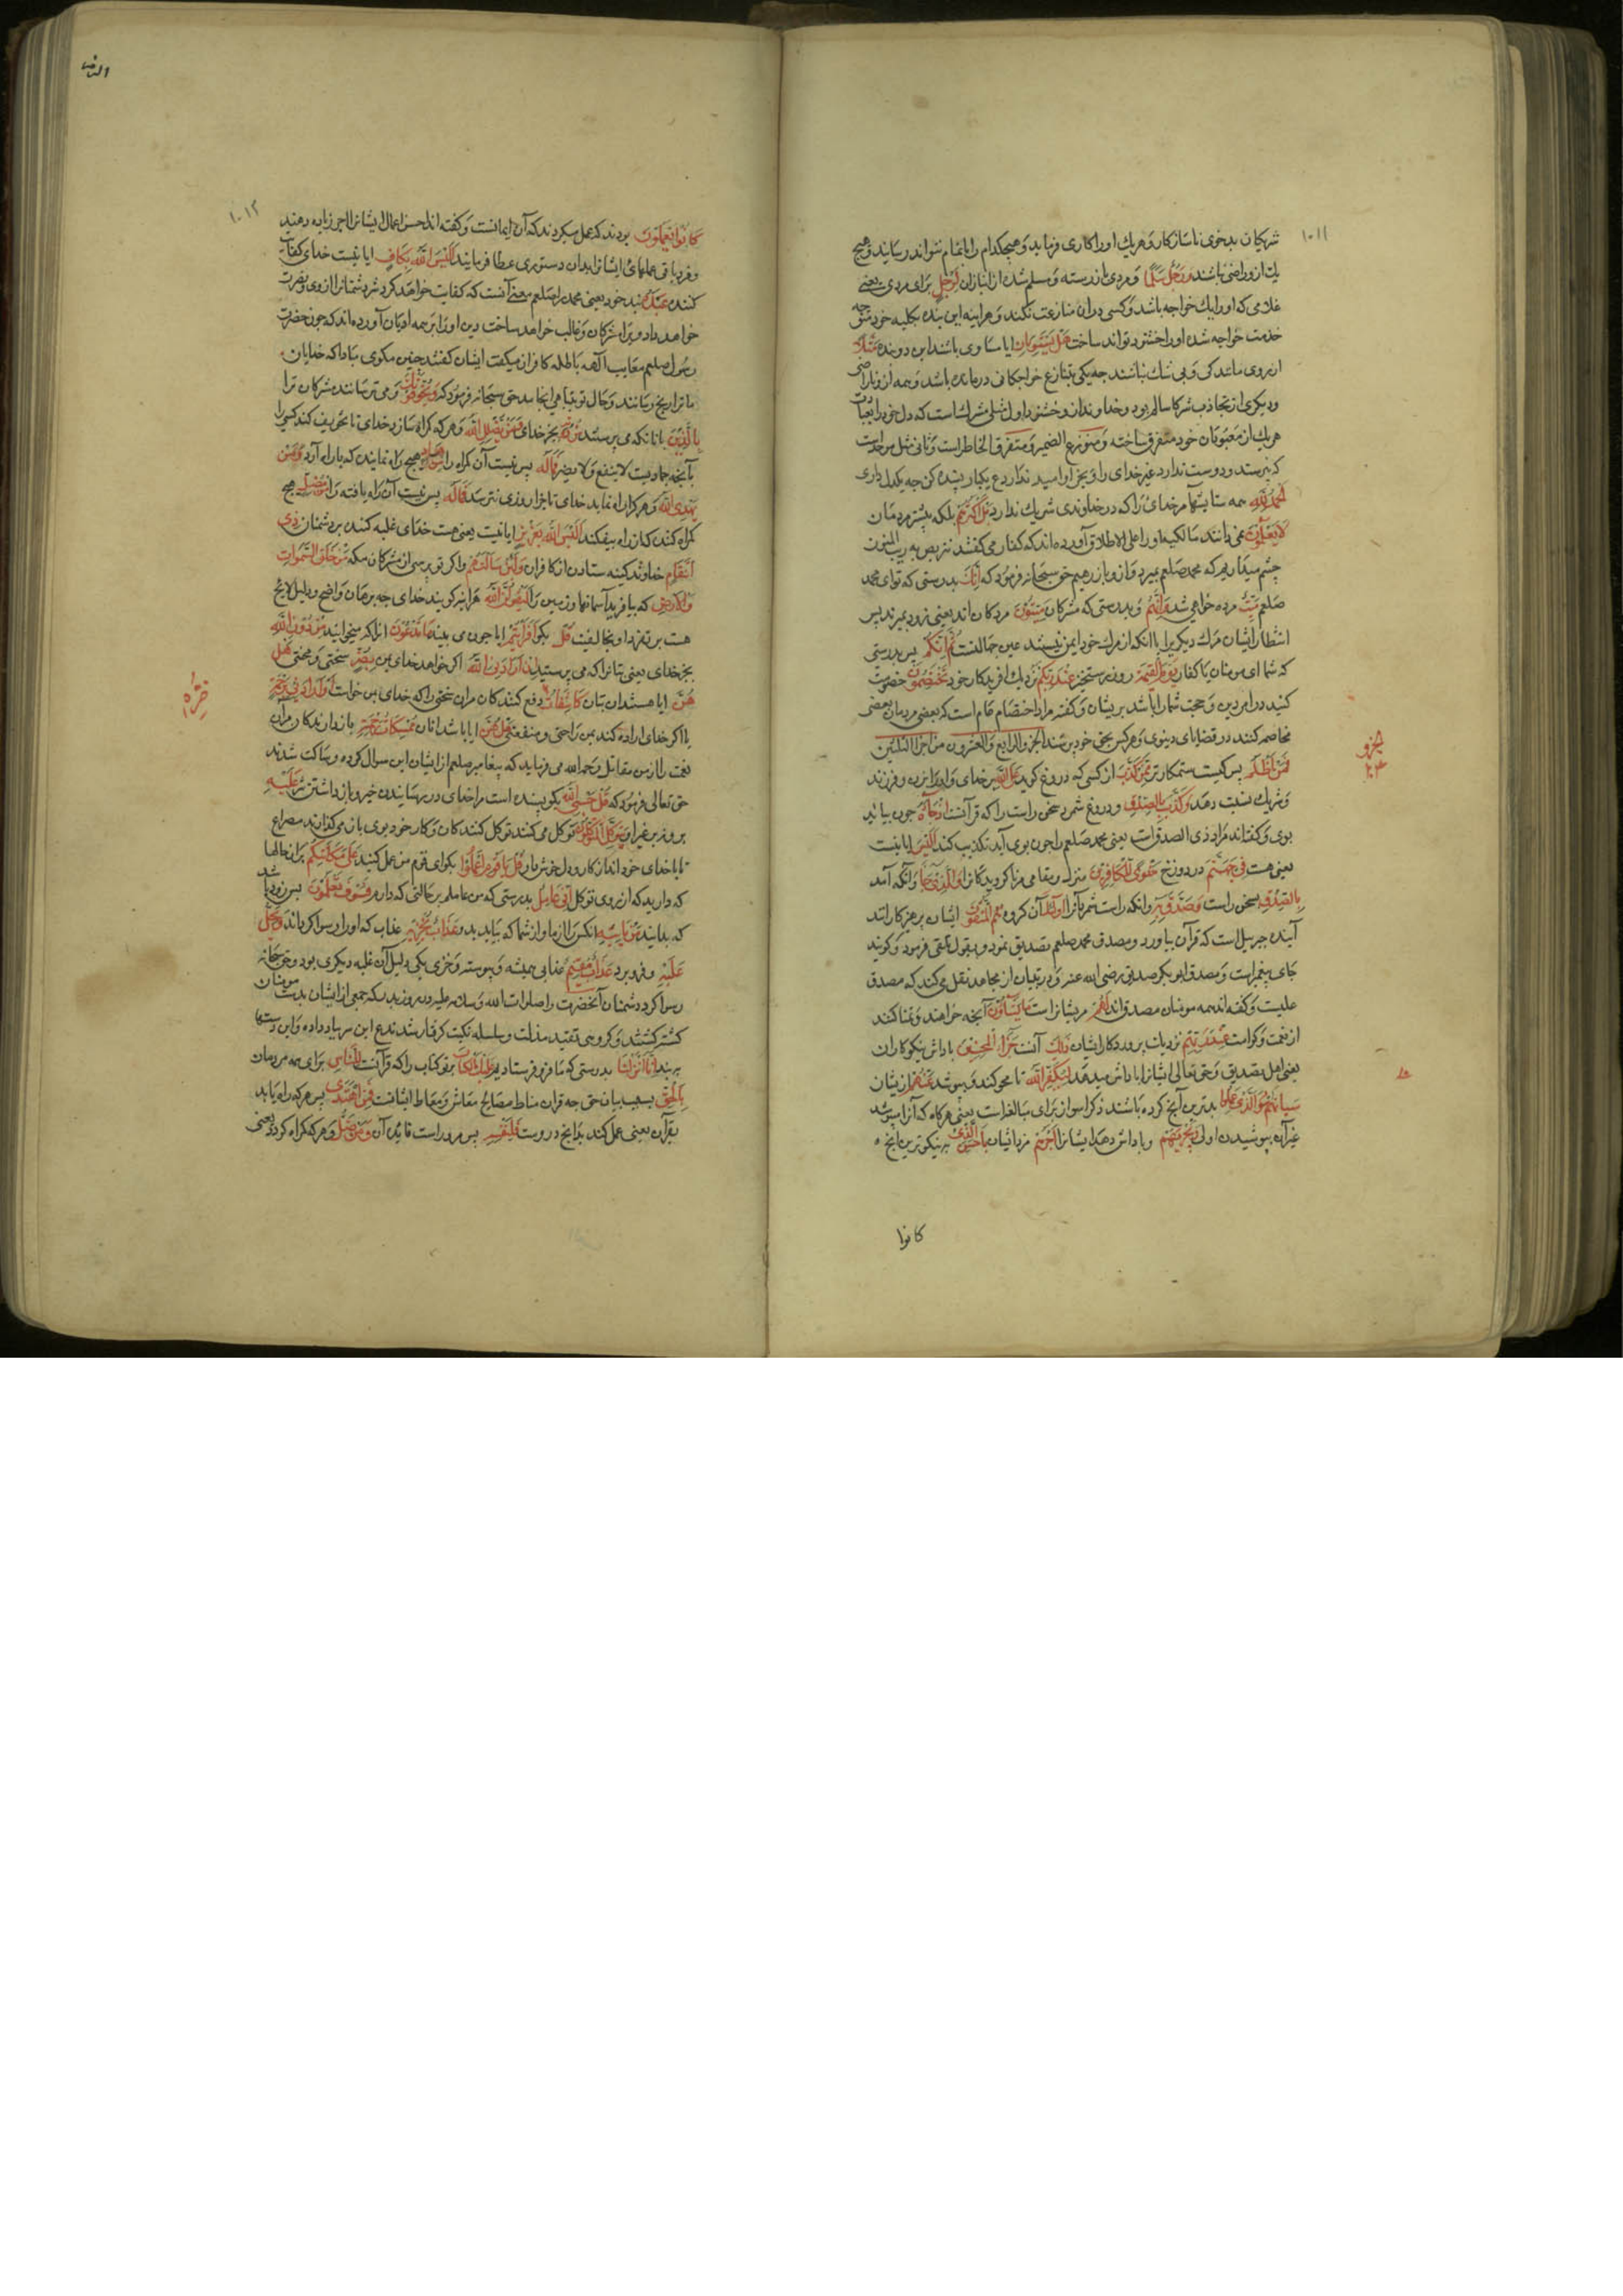 ۱۰۱۱
شریکان بدخوی ناسازکار و هریك اورا کاری فرماید و هیچکدام را بتمام نتواند رسانید و هیچ
یك ازو راضی نباشند وَرَجُلًا سَلَمًا و مردی باز رسته و مسلم شده از انبازان لِرَجُلٍ برای مردی یعنی
غلامی که اورا یك خواجه باشد و کسی دران منازعت نکند و هر اینه این بنده بکلیه خود متوجه
خدمت خواجه شده اورا خشنود تواند ساخت هَلْ يَسْتَوِيَانِ ایا مساوی باشند این دو بنده مَثَلًا
از روی مانندکی و بی شك نباشند چه یکی بتنازع خواجکان درمانده باشد و همه ازو ناراضی
و دیکری از تجاذب شرکا سالم بود و خداوند ازو خشنود اول مثل مشرکست که دل خود را بعبادت
هریك از معبودان خود متفرق ساخته و متوزع الضمیر و متفرق الخاطرست و ثانی مثل موحدست
که پرستد و دوست ندارد غیر خدای را و بجز او امید ندارد ع یکبار بسنده کن چه یکدل داری
اَلْحَمْدُ لِلَّهِ همه ستایشها مر خدای را که در خداوندی شریك ندارد بَلْ اَكْثَرُهُمْ بلکه بیشتر مردمان
لَا يَعْلَمُونَ نمی دانند مالکیة اورا علی الاطلاق آورده اند که کفار می کفتند نتربص به ریب المنون
چشم میداریم که محمد صلعم بمیرد و ازو باز رهیم حق سبحانه فرمود که اِنَّكَ بدرستی که تو ای محمد
صلعم مَيِّتٌ مرده خواهی شد وَاِنَّهُمْ و بدرستی که مشرکان مَيِّتُونَ مردکان اند یعنی زود بمیرند پس
انتظار ایشان مرك دیکریرا با انکه از مرك خود ایمن نیستند عین جهالتست ثُمَّ اِنَّكُمْ پس بدرستی
که شما ای مومنان با کفار يَوْمَ الْقِيٰمَةِ روز رستخیز عِنْدَ رَبِّكُمْ نزدیك افریدکار خود تَخْتَصِمُونَ خصومت
کنید در امر دین و حجت شمارا باشد بر ایشان و کفته مراد اختصام عام است که بعضی مردمان ببعضی
مخاصمه کنند در قضایای دنیوی و هر کس بحق خود برسند الجزو الرابع والعشرون من اجزا الثلثین
فَمَنْ اَظْلَمُ پس کیست ستمکارتر مِمَّنْ كَذَبَ از کسی که دروغ کوید عَلَى اللَّهِ بر خدای و اورا بزن و فرزند
و شریك نسبت دهد وَكَذَّبَ بِالصِّدْقِ و دروغ شمرد سخن راست را که قرآنست اِذْ جَاءَهُ چون بیاید
بوی و کفته اند مراد ذی الصدق است یعنی محمد صلعم را چون بوی آید تکذیب کند اَلَيْسَ ایا نیست
یعنی هست فِي جَهَنَّمَ در دوزخ مَثْوًى لِلْكَافِرِينَ منزل و مقامی مر ناکرویدکانرا وَالَّذِي جَاءَ و انکه آمد
بِالصِّدْقِ بسخن راست وَصَدَّقَ بِهِ و انکه راست شمرد آنرا اُولٰئِكَ آن کروه هُمُ الْمُتَّقُونَ ایشان پرهیزکارانند
آینده جبریل است که قرآن بیاورد و مصدق محمد صلعم تصدیق نمود و بقبول تلقی فرمود و کویند
جای پیغمبرست و مصدق ابو بکر صدیق رضی الله عنه و در تبیان از مجاهد نقل می کند که مصدق
علیست و کفته اند همه مومنان مصدق اند لَهُمْ مر ایشانراست مَا يَشَاؤُنَ آنچه خواهند و تمنا کنند
از نعمت و کرامت عِنْدَ رَبِّهِمْ نزدیك پروردکار ایشان ذٰلِكَ آنست جَزَاءُ الْمُحْسِنِينَ پاداش نیکوکاران
یعنی اهل تصدیق و حق تعالی ایشانرا پاداش میدهد لِيُكَفِّرَ اللَّهُ تا محو کند و بپوشد عَنْهُمْ از ایشان
اَسْوَءَ الَّذِي عَمِلُوا بدترین آنچ کرده باشند ذکر اسو از برای مبالغه است یعنی هرکاه که آنرا بپوشد
غیر آن بپوشیدن اولی وَيَجْزِيَهُمْ و پاداش دهد ایشانرا اَجْرَهُمْ مزد ایشان بِاَحْسَنِ الَّذِي به نیکوترین آنچه
کانوا
جزو
۲۴
۱۰۱۲
كَانُوا يَعْمَلُونَ بودند که عمل میکردند که آن ایمانست و کفته اند احسن اعمال ایشانرا اجر زیاده دهند
و فرد باقی عملهای ایشانرا بدان دستوری عطا فرمایند اَلَيْسَ اللَّهُ بِكَافٍ ایا نیست خدای کفایت
کننده عَبْدَهُ بنده خود یعنی محمد را صلعم معنی آنست که کفایت خواهد کرد شر دشمنانرا ازوی و نصرت
خواهد داد ویرا بر مشرکان و غالب خواهد ساخت دین اورا بر همه ادیان آورده اند که چون حضرت
رسول صلعم معایب الهه باطله کافران میکفت ایشان کفتند چنین مکوی مبادا که خدایان
ما ترا رنج رسانند و حال تو بتباهی انجامد حق سبحانه فرمود که وَيُخَوِّفُونَكَ و می ترسانند مشرکان ترا
بِالَّذِينَ بانانکه می پرستند مِنْ دُونِهِ بجز خدای وَمَنْ يُضْلِلِ اللَّهُ و هرکه کمراه سازد خدای تا تخویف کند کسی را
بآنچه جمادیست لا ینفع و لا یضر فَمَا لَهُ پس نیست آن کمراه را مِنْ هَادٍ هیچ راه نماینده که براه آرد وَمَنْ
يَهْدِي اللَّهُ و هرکرا راه نماید خدای تا جز از وی نترسد فَمَا لَهُ پس نیست آن راه یافته را مِنْ مُضِلٍّ هیچ
کمراه کننده که از راه بیفکند اَلَيْسَ اللَّهُ بِعَزِيزٍ ایا نیست یعنی هست خدای غلبه کننده بر دشمنان ذِي
انْتِقَامٍ خداوند کینه ستادن از کافران وَلَئِنْ سَاَلْتَهُمْ و اکر تو پرسی از مشرکان مکه مَنْ خَلَقَ السَّمٰوَاتِ
وَالْاَرْضَ که بیافرید آسمانها و زمین را لَيَقُولُنَّ اللَّهُ هراینه کویند خدای چه برهان واضح و دلیل لایح
هست بر تفرد او بخالقیت قُلْ بکو اَفَرَاَيْتُمْ ایا چون می بینید مَا تَدْعُونَ انرا که میخوانید مِنْ دُونِ اللَّهِ
بجز خدای یعنی بتانرا که می پرستید اِنْ اَرَادَنِيَ اللَّهُ اکر خواهد خدای بمن بِضُرٍّ سختی و محنتی هَلْ
هُنَّ ایا هستند آن بتان كَاشِفَاتُ دفع کنندکان مر ان سختی را که خدای بمن خواست اَوْ اَرَادَنِي بِرَحْمَةٍ
یا اکر خدای اراده کند بمن راحتی و منفعتی هَلْ هُنَّ ایا باشند انان مُمْسِكَاتُ رَحْمَتِهِ باز دارندکان مر آن
نعمت را از من مقاتل رحمه الله می فرماید که پیغامبر صلعم از ایشان این سوال کرده و ساکت شدند
حق تعالی فرمود که قُلْ حَسْبِيَ اللَّهُ بکو بسنده است مرا خدای در رسانیدن خیر و باز داشتن شر عَلَيْهِ
برو نه بر غیر او يَتَوَكَّلُ الْمُتَوَكِّلُونَ توکل می کنند توکل کنندکان و کار خود بوی باز می کذارند مصراع
تا با خدای خود انداز کار و دل خوش دار قُلْ يَا قَوْمِ اعْمَلُوا بکو ای قوم من عمل کنید عَلٰى مَكَانَتِكُمْ بر ان حالها
که دارید که از روی توکل اِنِّي عَامِلٌ بدرستی که من عاملم بر حالتی که دارم فَسَوْفَ تَعْلَمُونَ پس زود باشد
که بدانید مَنْ يَأْتِيهِ انکس را از ما و از شما که بیاید بدو عَذَابٌ يُخْزِيهِ عذابی که اورا رسوا کرداند وَيَحِلُّ
عَلَيْهِ و فرود آید برو عَذَابٌ مُقِيمٌ عذابی همیشه و پیوسته و خزی یکی دلیل آن غلبه دیکری بود و حق سبحانه
رسوا کرد دشمنان آنحضرت را صلوات الله و سلامه علیه در روز بدر که جمعی از ایشان بدست مومنان
کشته کشتند و کروهی بقید مذلت و سلسله نکبت کرفتار شدند ع این سر بباد داده و ان دستها
به بند اِنَّا اَنْزَلْنَا بدرستی که ما فرو فرستادیم عَلَيْكَ الْكِتَابَ بر تو کتاب را که قرآنست لِلنَّاسِ برای همه مردمان
بِالْحَقِّ بسبب بیان حق چه قران مناط مصالح معاش و معاد ایشانست فَمَنِ اهْتَدٰى پس هرکه راه یابد
بقرآن یعنی عمل کند بدانچ دروست فَلِنَفْسِهِ پس مر نفس اوراست فایده آن وَمَنْ ضَلَّ و هرکه کمراه کردد یعنی